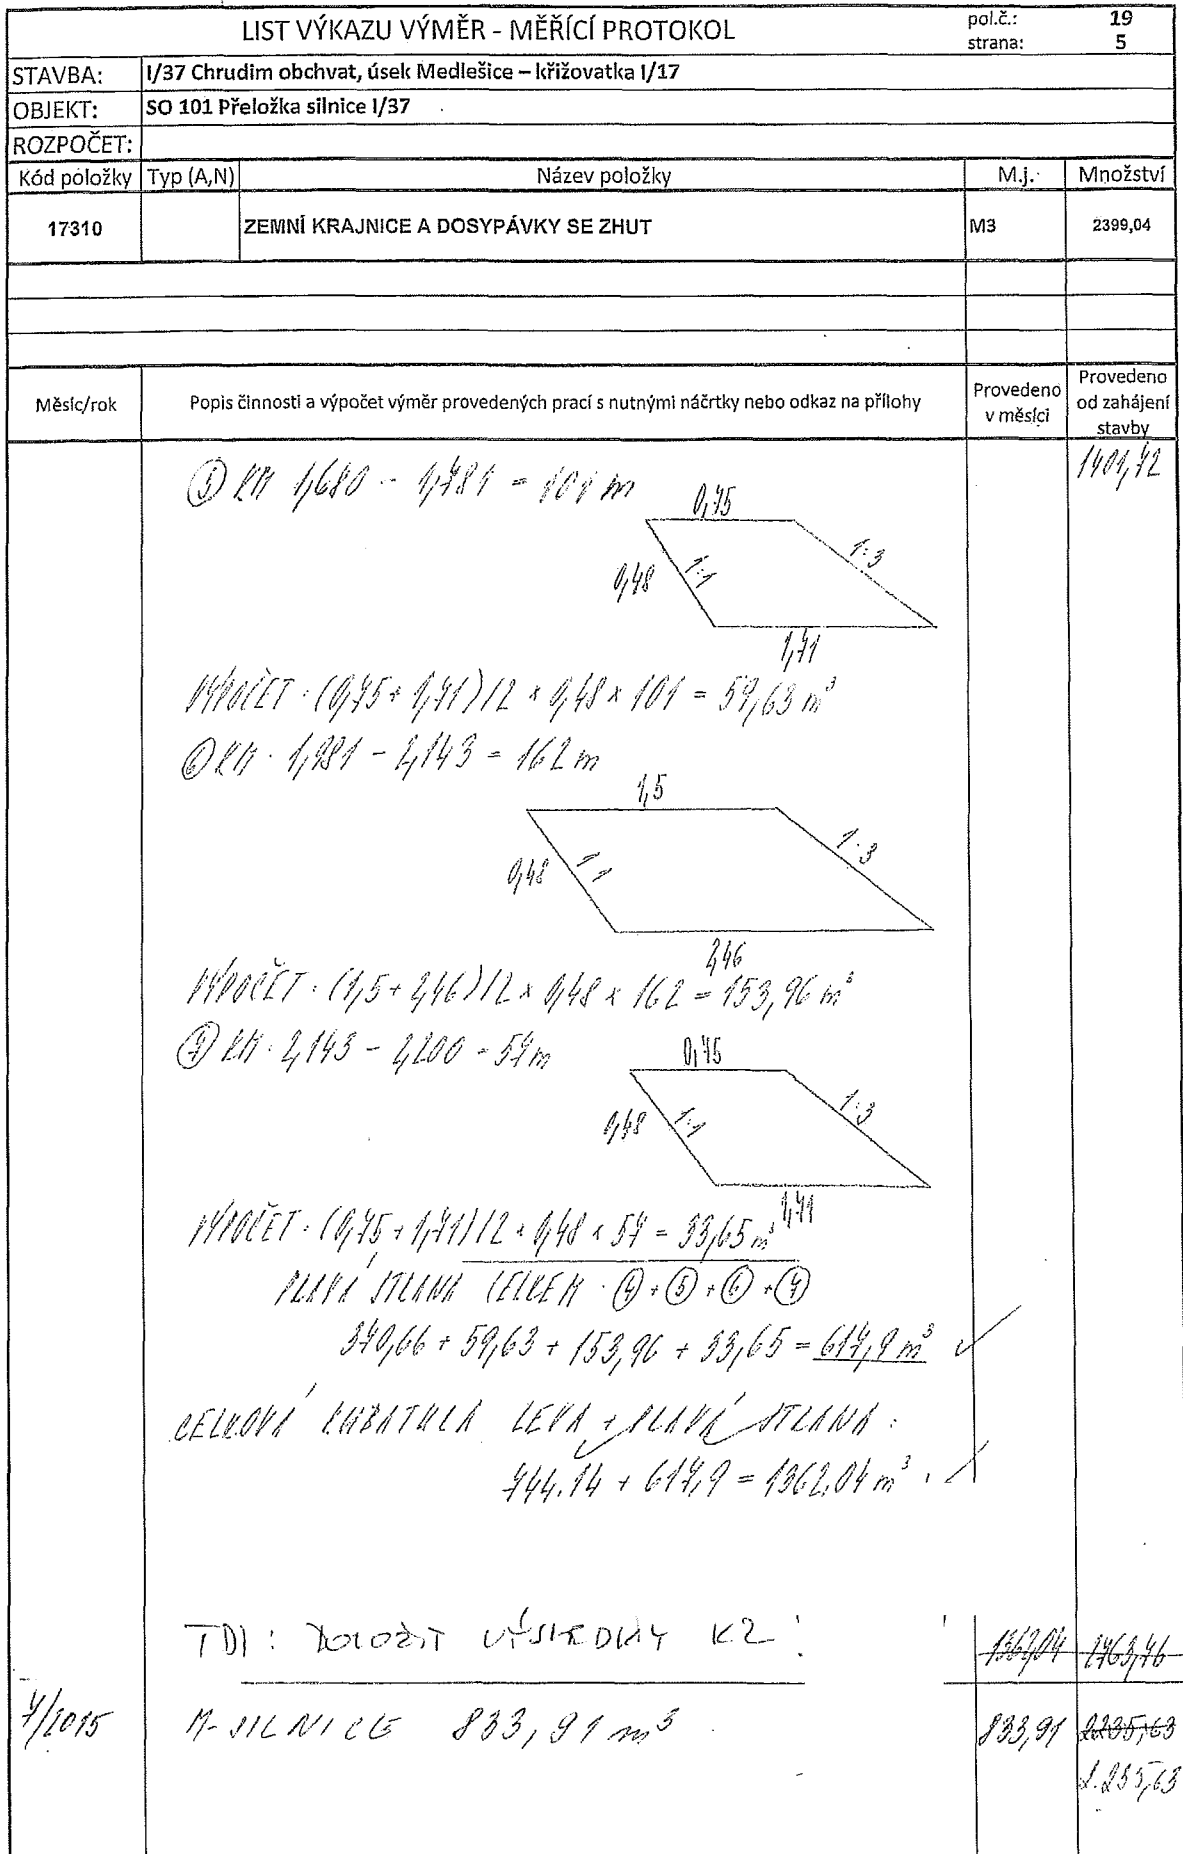 LIST VÝKAZU VÝMĚR - MĚŘÍCÍ PROTOKOL
pol.č.: 19
strana: 5
STAVBA: I/37 Chrudim obchvat, úsek Medlešice – křižovatka I/17
OBJEKT: SO 101 Přeložka silnice I/37
ROZPOČET:
Kód položky Typ (A,N) Název položky M.j. Množství
17310 ZEMNÍ KRAJNICE A DOSYPÁVKY SE ZHUT M3 2399,04
Měsíc/rok Popis činnosti a výpočet výměr provedených prací s nutnými náčrtky nebo odkaz na přílohy Provedeno v měsíci Provedeno od zahájení stavby
1401,72
⑤ KM 1,680 - 1,781 = 101 m
0,75
0,48 1:1 1:3
1,71
VÝPOČET: (0,75 + 1,71)/2 × 0,48 × 101 = 59,63 m³
⑥ KM. 1,981 - 2,143 = 162 m
1,5
0,48 1:1 1:3
2,46
VÝPOČET: (1,5 + 2,46)/2 × 0,48 × 162 = 153,96 m³
⑦ KM. 2,143 - 2,200 = 57 m
0,75
0,48 1:1 1:3
1,71
VÝPOČET: (0,75 + 1,71)/2 × 0,48 × 57 = 33,65 m³
PRAVÁ STRANA CELKEM: ④ + ⑤ + ⑥ + ⑦
370,66 + 59,63 + 153,96 + 33,65 = 617,9 m³
CELKOVÁ KUBATURA LEVÁ + PRAVÁ STRANA:
744.14 + 617,9 = 1362,04 m³
TDI: DOLOŽIT VÝSLEDKY KZ!
1362,04 2763,76
7/2015 M-SILNICE 833,91 m³ 833,91 2235,63
2.235,63